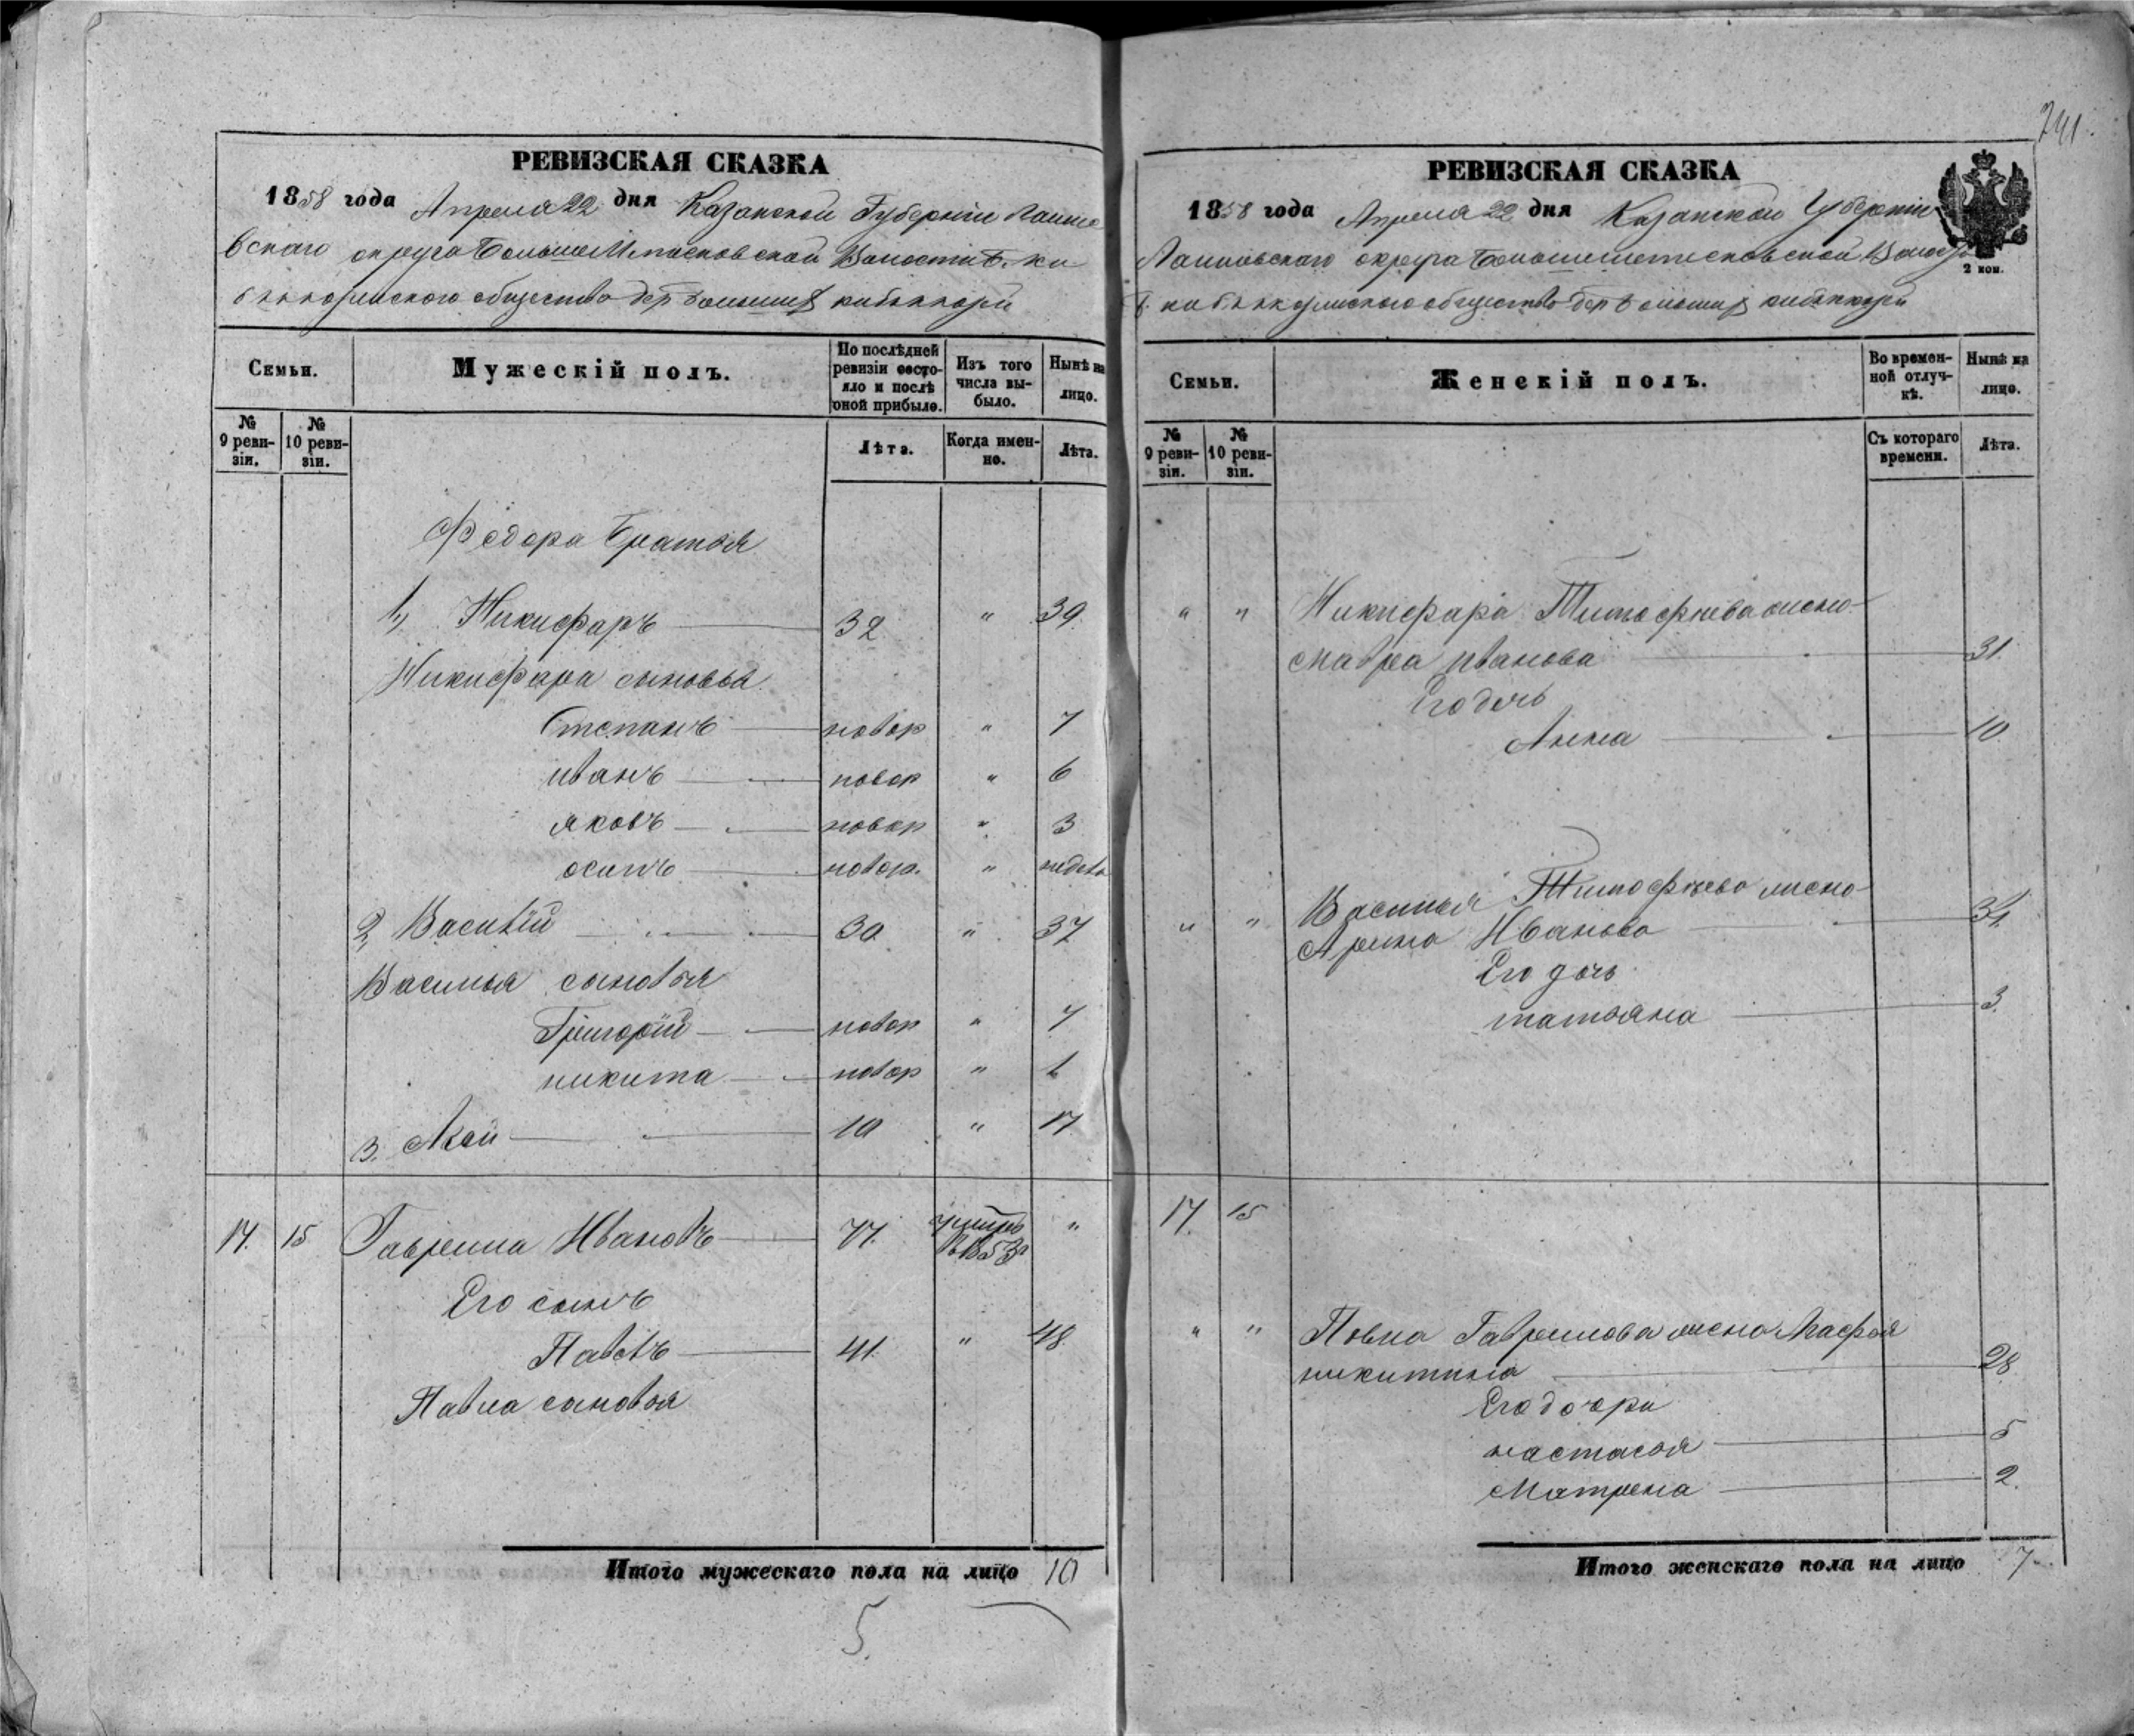 741.
РЕВИЗСКАЯ СКАЗКА
1858 года Апреля 22 дня Казанской Губерніи Лаише
вскаго округа Волости
общество дер
Семьи.
Мужескій полъ.
По послѣдней ревизіи состояло и послѣ оной прибыло.
Изъ того числа выбыло.
Нынѣ на лицо.
№ 9 ревизіи.
№ 10 ревизіи.
Лѣта.
Когда именно.
Лѣта.
Федора братья
1, Никифаръ 32 " 39
Никифара сыновья
Степанъ новор " 7
иванъ новор " 6
яковъ новор " 3
осипъ новор. " недель
2, Василій 30 " 37
Василья сыновья
Григорій новор " 7
никита новор " 1
3. 10 " 17
17. 15 Гаврила Ивановъ 77. умеръ в 1853 "
Его сынъ
Павелъ 41. " 48
Павла сыновья
Итого мужескаго пола на лицо 10
5.
РЕВИЗСКАЯ СКАЗКА
1858 года Апреля 22 дня Казанской Губерніи
2 коп.
Лаишевскаго округа
общество дер
Семьи.
Женскій полъ.
Во временной отлучкѣ.
Нынѣ на лицо.
№ 9 ревизіи.
№ 10 ревизіи.
Съ котораго времени.
Лѣта.
" " Никифара Тимофеева жена
мавра иванова 31.
Его дочь
Анна 10
" " Василья Тимофеева жена
Арина Иванова 31
Его дочь
татьяна 3.
17. 15
" " Павла Гаврилова жена Марфа
никитина 28
Его дочри
настасья 5
Матрена 2.
Итого женскаго пола на лицо 7